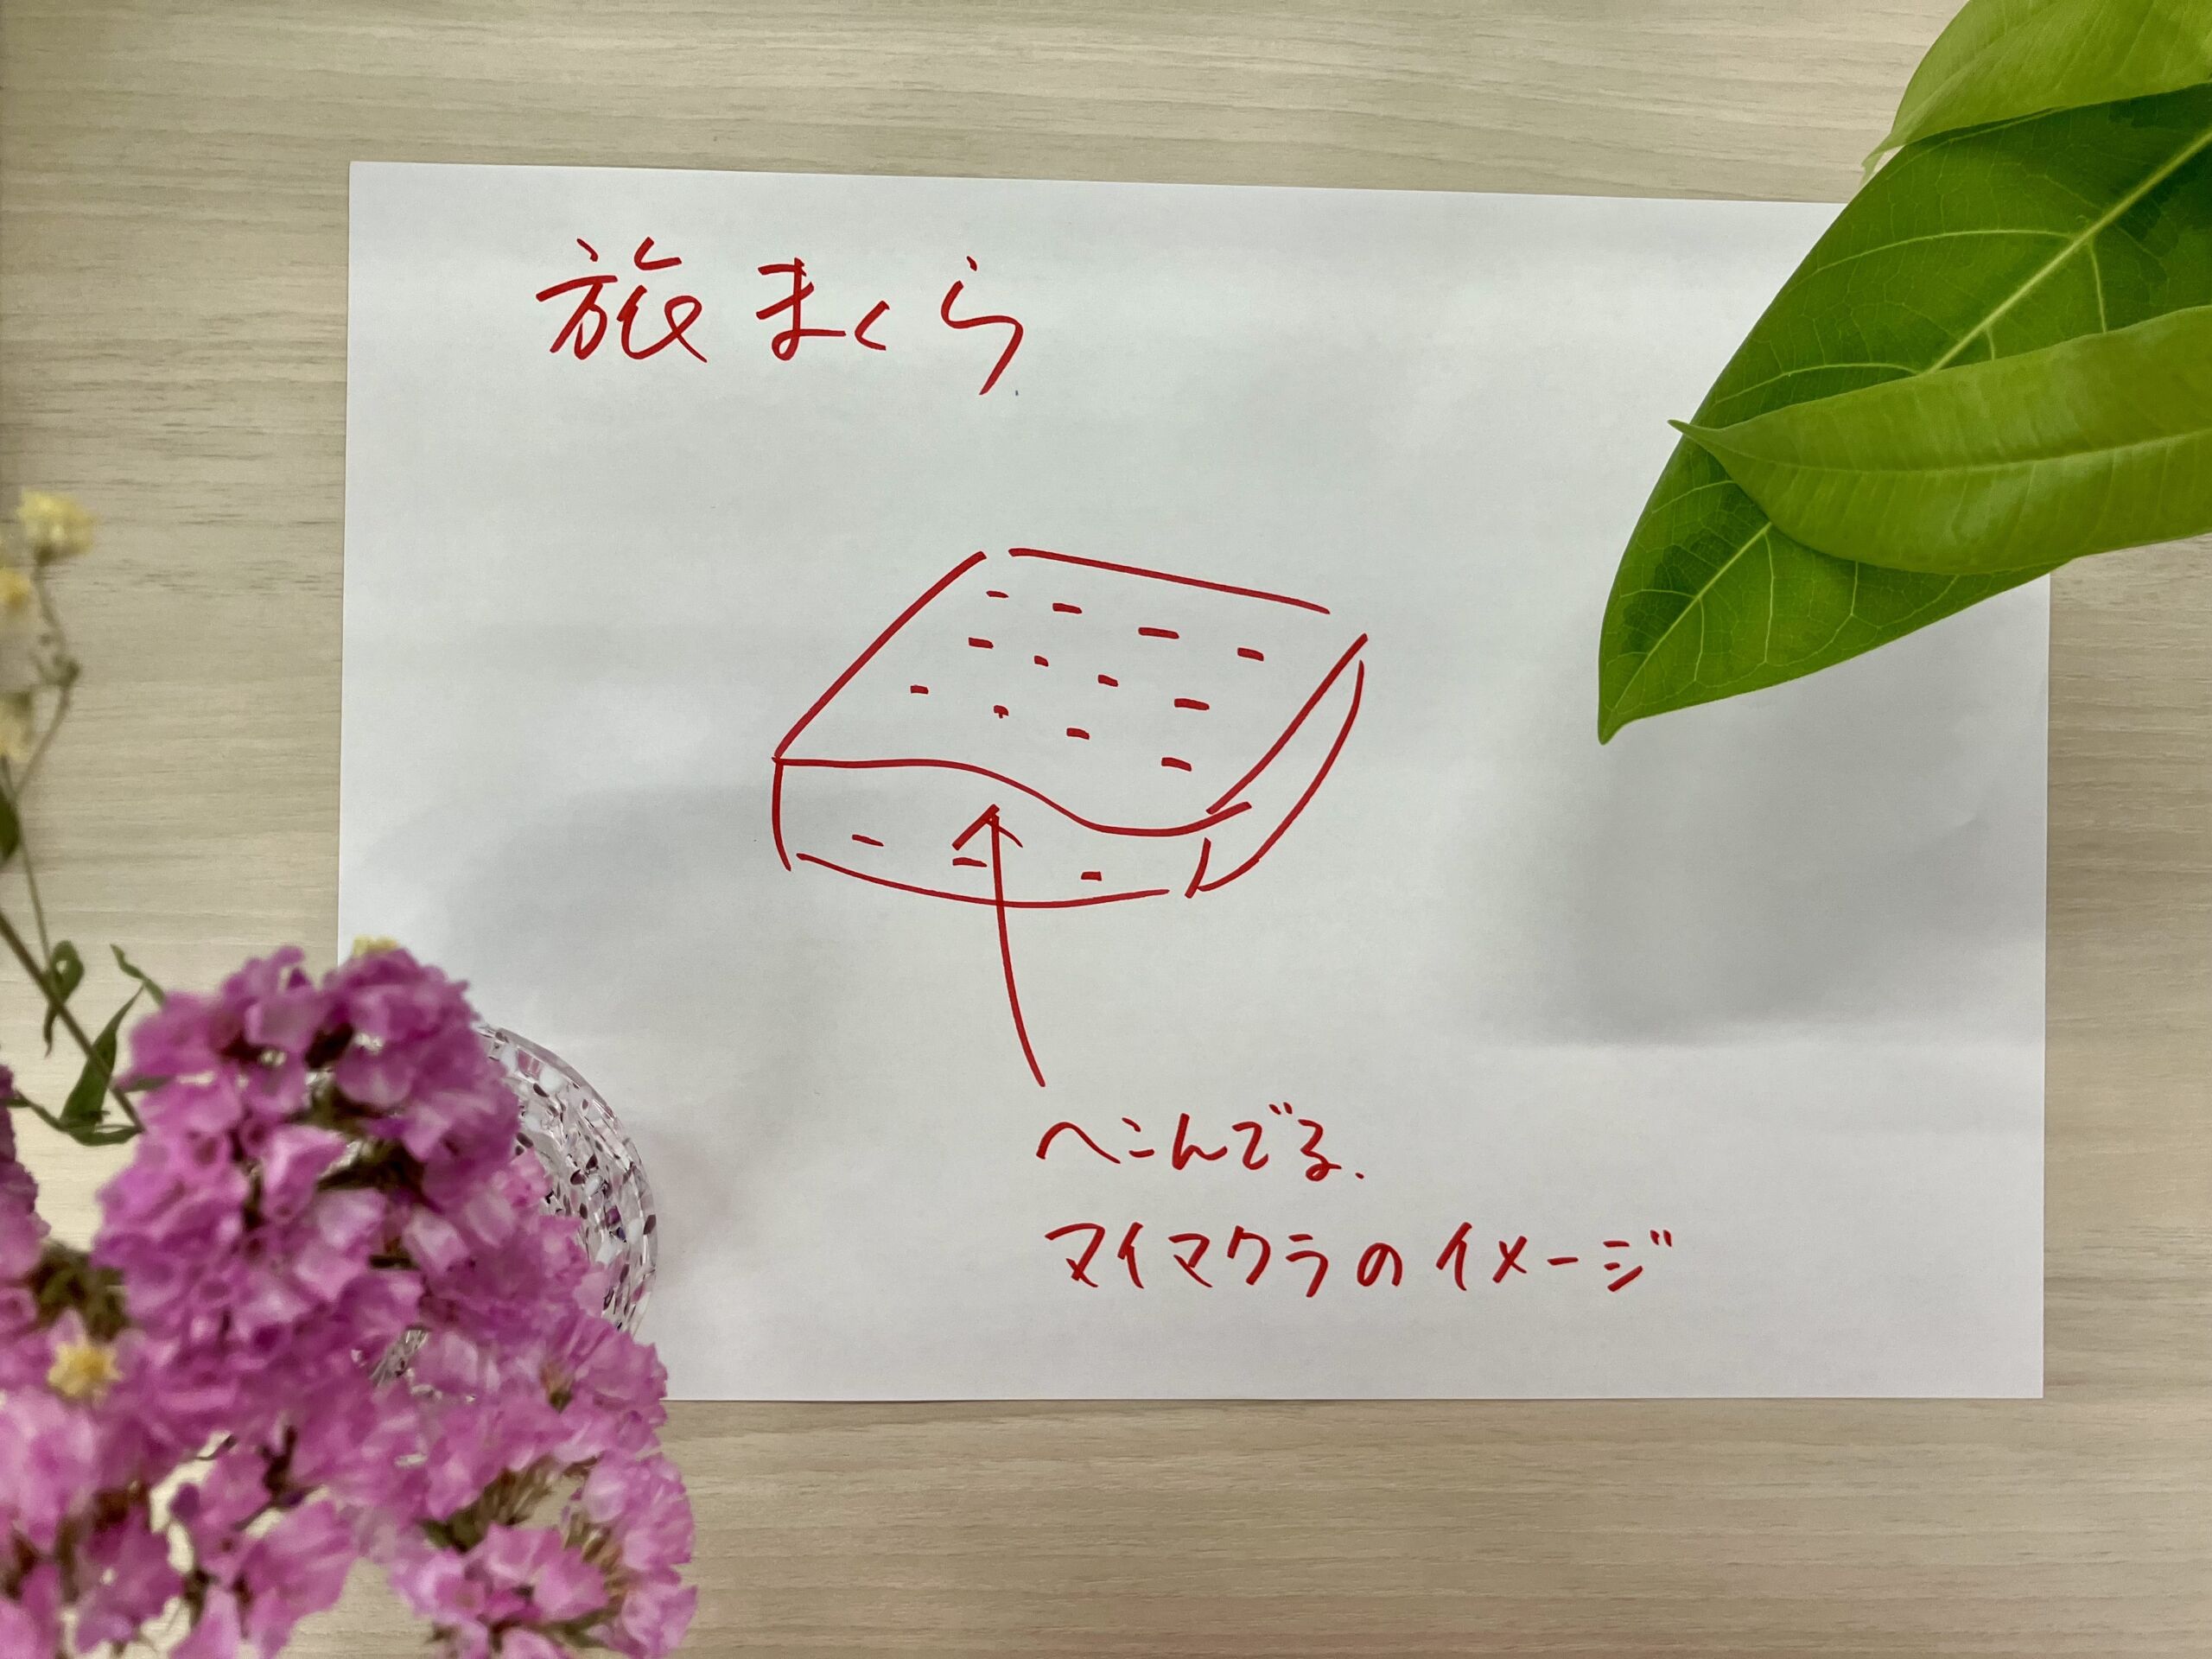 旅まくら
へこんでる.
マイマクラのイメージ